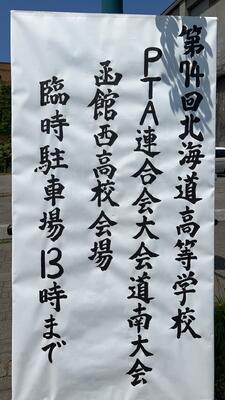 第74回北海道高等学校
PTA連合会大会道南大会
函館西高校会場
臨時駐車場13時まで